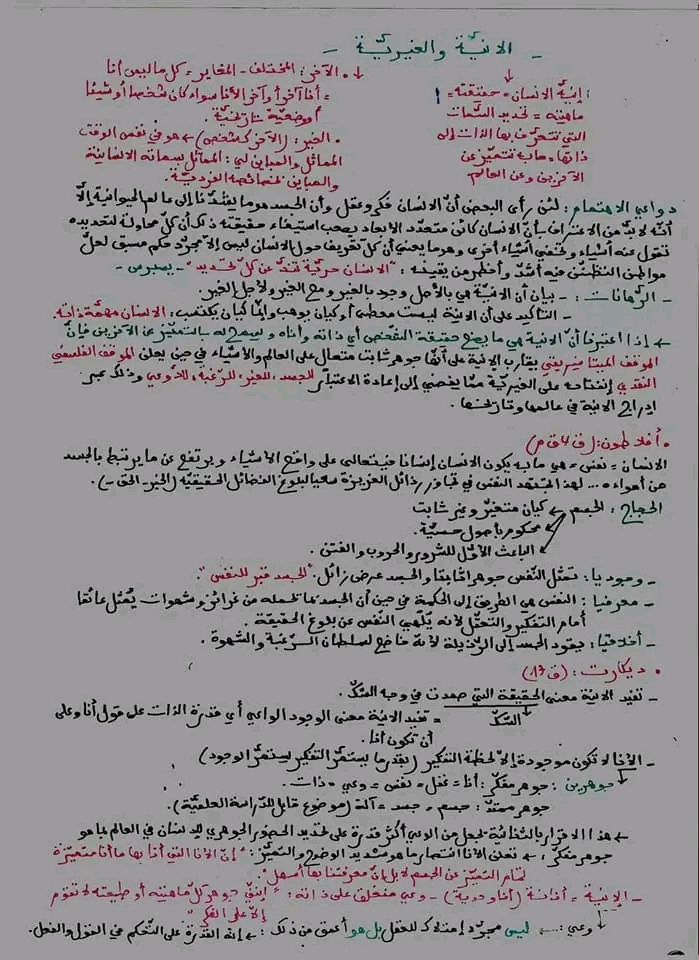 - الانيّة والغيريّة -
إنيّة الانسان = حقيقته =
ماهيته = تحديد السّمات
التي تتعرّف بها الذات إلى
ذاتها = ما به تتميّز عن
الآخرين وعن العالم
• الآخر: المختلف - المغاير = كل ما ليس أنا
= أنا آخر أو آخر الأنا سواء كان شخصا أو شيئا
أو وضعيّة تاريخيّة.
الغير: (الآخر كشخص) ← هو في نفس الوقت
المماثل والمباين لي: المماثل بسماته الانسانية
والمباين بخصائصه الفرديّة.
دواعي الاهتمام: لئن رأى البعض أنّ الانسان فكر وعقل وأن الجسد هو ما يشدّنا إلى عالم الحيوانية إلاّ
أنّه لابدّ من الاعتراف بأنّ الانسان كائن متعدّد الابعاد يصعب استيفاء حقيقته ذلك أنّ كلّ محاولة لتحديده
تقول عنه أشياء وتخفي أشياء أخرى وهو ما يعني أن كل تعريف حول الانسان ليس إلاّ مجرّد حكم مسبق لعلّ
مواطن التظنّن فيه أشدّ وأخطر من يقينه: "الانسان حريّة تندّ عن كلّ تحديد" -
- الرّهانات: - بيان أن الانيّة هي بالأصل وجود بالغير ومع الغير ولأجل الغير.
- التأكيد على أن الانية ليست معطى أو كيان يوهب وإنّما كيان يكتسب: الانسان مهمّة ذاته.
← إذا اعتبرنا أنّ الانية هي ما يصنع حقيقة الشّخص أي ذاته وأناه ويسمح له بالتميّز عن الآخرين فإنّ
الموقف الميتافيزيقي يقارب الإنية على أنّها جوهر ثابت متعال على العالم والأشياء في حين يعلن الموقف الفلسفي
النقدي إنفتاحه على الغيريّة ممّا يفضي إلى إعادة الاعتبار للجسد، للغير، للرّغبة، للاّوعي وذلك عبر
إدراج الانية في عالمها وتاريخها.
• أفلاطون: (ق 4 ق م)
الانسان = نفس = هي ما به يكون الانسان إنسانا فيتعالى على واقع الأشياء ويرتفع عن ما يرتبط بالجسد
من أهواء ... لهذا تجتهد النفس في تجاوز رذائل الغريزة سعيا لبلوغ الفضائل الحقيقيّة (الخير - الحق -).
الحجاج: الجسم ← كيان متغيّر وغير ثابت
← محكوم بأصول حسيّة.
← الباعث الأوّل للشرور والحروب والفتن.
- وجوديا: تمثّل النّفس جوهرا ثابتا والجسد عرض زائل. "الجسد قبر للنفس".
- معرفيا: النفس هي الطريق إلى الحكمة في حين أن الجسد بما تحمله من غرائز وشهوات يُمثل عائقا
أمام التفكير والتعقّل لأنه يلهي النفس عن بلوغ الحقيقة.
- أخلاقيا: يقود الجسد إلى الرّذيلة لأنّه خاضع لسلطان الرّغبة والشهوة.
• ديكارت: (ق 17)
- تفيد الانية معنى الحقيقة التي صمدت في وجه الشكّ.
الشكّ = تفيد الانية معنى الوجود الواعي أي قدرة الذات على قول أنا وعلى
أن تكون أنا.
- الأنا لا تكون موجودة إلاّ لحظة التفكير (بقدر ما يستمرّ التفكير يستمرّ الوجود)
جوهرين: جوهر مفكّر: أنا = عقل = نفس = وعي = ذات.
جوهر ممتدّ: جسم = جسد = آلة (موضوع قابل للدّراسة العلميّة).
← هذا الاقرار بالثّنائية تجعل من الوعي أكثر قدرة على تحديد الحضور الجوهري للانسان في العالم بما هو
جوهر مفكّر، ← تعلن الأنا انتصار ما هو شديد الوضوح والتميّز: "إنّ الأنا التي أنا بها ما أنا متميّزة
تمام التميّز عن الجسم لا بل إنّ معرفتنا بها أسهل"
- الإنيّة = أنانة (أناوحدية) - وعي منغلق على ذاته: "إنّني جوهر كلّ ماهيته أو طبيعته لا تقوم
إلاّ على الفكر"
وعي: ... ← ليس مجرّد إمتلاك للعقل بل هو أعمق من ذلك: ← إنّه القدرة على التّحكم في القول والفعل.